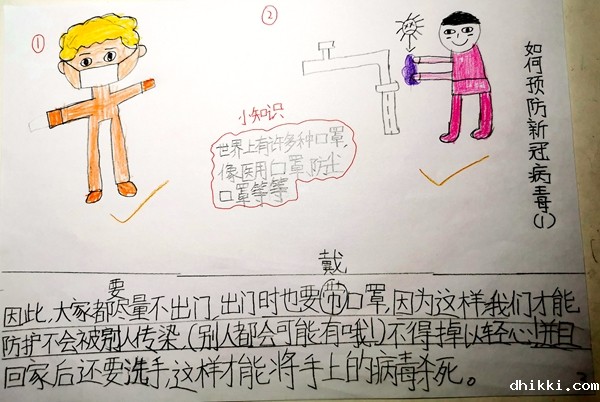 ①
②
如何预防新冠病毒(1)
小知识
世界上有许多种口罩,
像医用口罩,防尘
口罩等等
要
戴
因此,大家都尽量不出门,出门时也要带口罩,因为这样我们才能
防护不会被别人传染,(别人都会可能有哦!)不得掉以轻心!并且
回家后还要洗手,这样才能将手上的病毒杀死。
dhikki.com